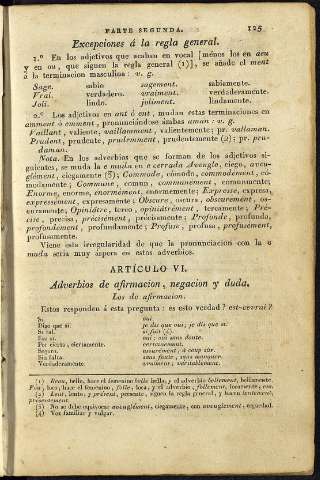 PARTE SEGUNDA. 125
Excepciones á la regla general.
1.º En los adjetivos que acaban en vocal [ménos los en eau
y en ou, que siguen la regla general (1)], se añade el ment
á la terminacion masculina: v. g.
Sage. sabio sagement. sabiamente.
Vrai. verdadero. vraiment. verdaderamente.
Joli. lindo. joliment. lindamente.
2.º Los adjetivos en ant ó ent, mudan estas terminaciones en
amment ó emment, pronunciándose ambas aman: v. g.
Vaillant, valiente, vaillamment, valientemente; pr. vallaman.
Prudent, prudente, prudemment, prudentemente (2); pr. pru-
daman.
Nota. En los adverbios que se forman de los adjetivos si-
guientes, se muda la e muda en é cerrada Aveugle, ciego, aveu-
glément, ciegamente (3); Commode, cómodo, commodément, có-
modamente; Commune, comun, communément, comunmente;
Enorme, enorme, énormément, enormemente; Expresse, expresa,
expressément, expresamente; Obscure, oscura, obscurément, os-
curamente; Opiniâtre, terco, opiniâtrément, tercamente; Pré-
cise, precisa, précisément, precisamente; Profonde, profunda,
profondément, profundamente; Profuse, profusa, profusément,
profusamente.
Viene esta irregularidad de que la pronunciacion con la e
muda seria muy áspera en estos adverbios.
ARTÍCULO VI.
Adverbios de afirmacion, negacion y duda.
Los de afirmacion.
Estos responden á esta pregunta: es esto verdad? est-ce vrai?
Si. oui.
Digo que si. je dis que oui; je dis que si.
Si tal. si fait (4).
Por cierto, ciertamente. certainement.
Seguro. assurément, à coup sûr.
Sin falta. sans faute, sans manquer.
Verdaderamente. vraiment; véritablement.
(1) Beau, bello, hace el femenino belle bella, y el adverbio bellement, bellamente.
Fou, loco, hace el femenino, folle, loca, y el adverbio, follement, locamente, etc.
(2) Lent, lento; y présent, presente, siguen la regla general, y hacen lentement,
présentement.
(3) No se debe equivocar aveuglément, ciegamente, con aveuglement, ceguedad.
(4) Voz familiar y vulgar.